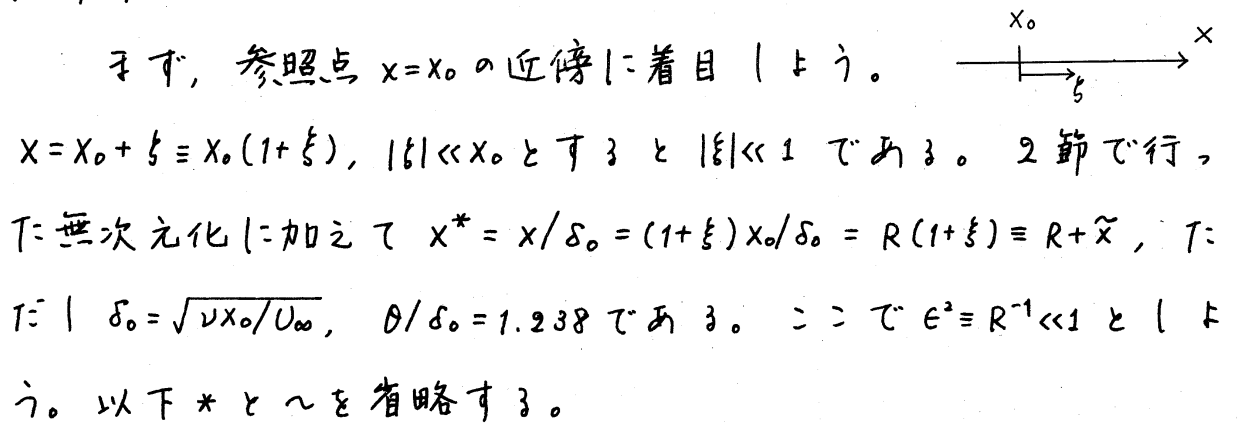 まず, 参照点 x=x₀ の近傍に着目しよう。
x₀ x
ς
x = x₀ + ς ≡ x₀(1+ξ), |ς|≪x₀ とすると |ξ|≪1 である。 2節で行っ
た無次元化に加えて x* = x/δ₀ = (1+ξ)x₀/δ₀ = R(1+ξ) ≡ R+x̃, た
だし δ₀=√νx₀/U∞, θ/δ₀=1.238である。ここで ϵ²≡R⁻¹≪1 としよ
う。以下 * と ~ を省略する。